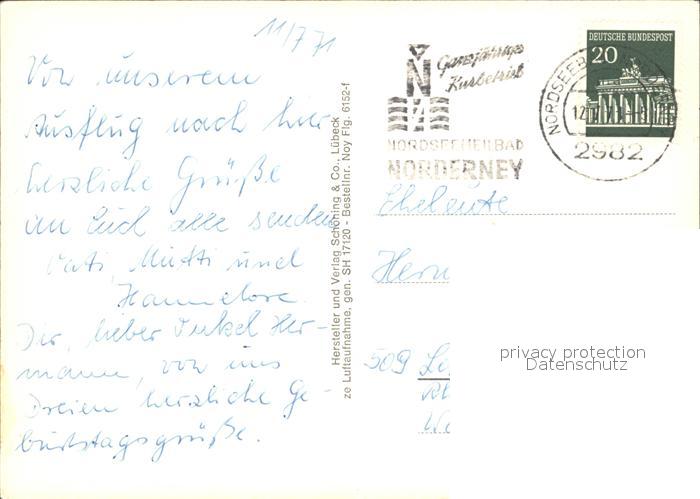 11/7 71
Von unserem
Ausflug nach hier
herzliche Grüße
an Euch alle senden
Vati, Mutti und
Hannelore.
Dir, lieber Onkel Her-
mann, von uns
Dreien herzliche Ge-
burtstagsgrüße.
Hersteller und Verlag Schöning & Co., Lübeck
ze Luftaufnahme, gen. SH 17120 - Bestellnr. Noy Flg. 6152-f
Ganzjähriger
Kurbetrieb
N
NORDSEEHEILBAD
NORDERNEY
DEUTSCHE BUNDESPOST
20
NORDSEEB
2982
Eheleute
Herm
509
privacy protection
Datenschutz